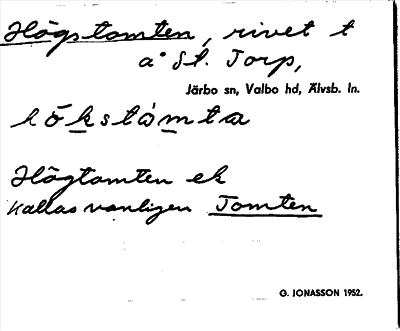 Högstomten, rivet t
å St. Torp,
Järbo sn, Valbo hd, Älvsb. ln.
hökstòmta
Högtomten ek
kallas vanligen Tomten
G. JONASSON 1952.